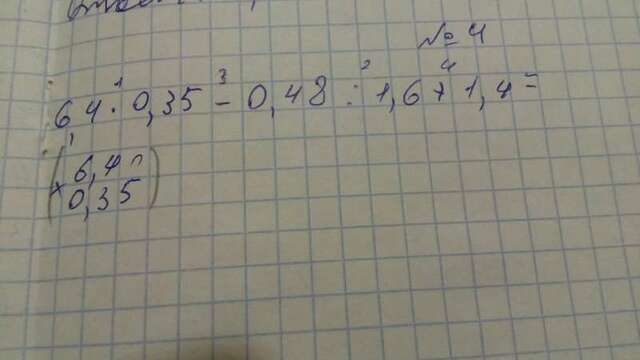 № 4
1 3 2 4
6,4 · 0,35 - 0,48 : 1,6 + 1,4 =
1
6,4
× 0,35